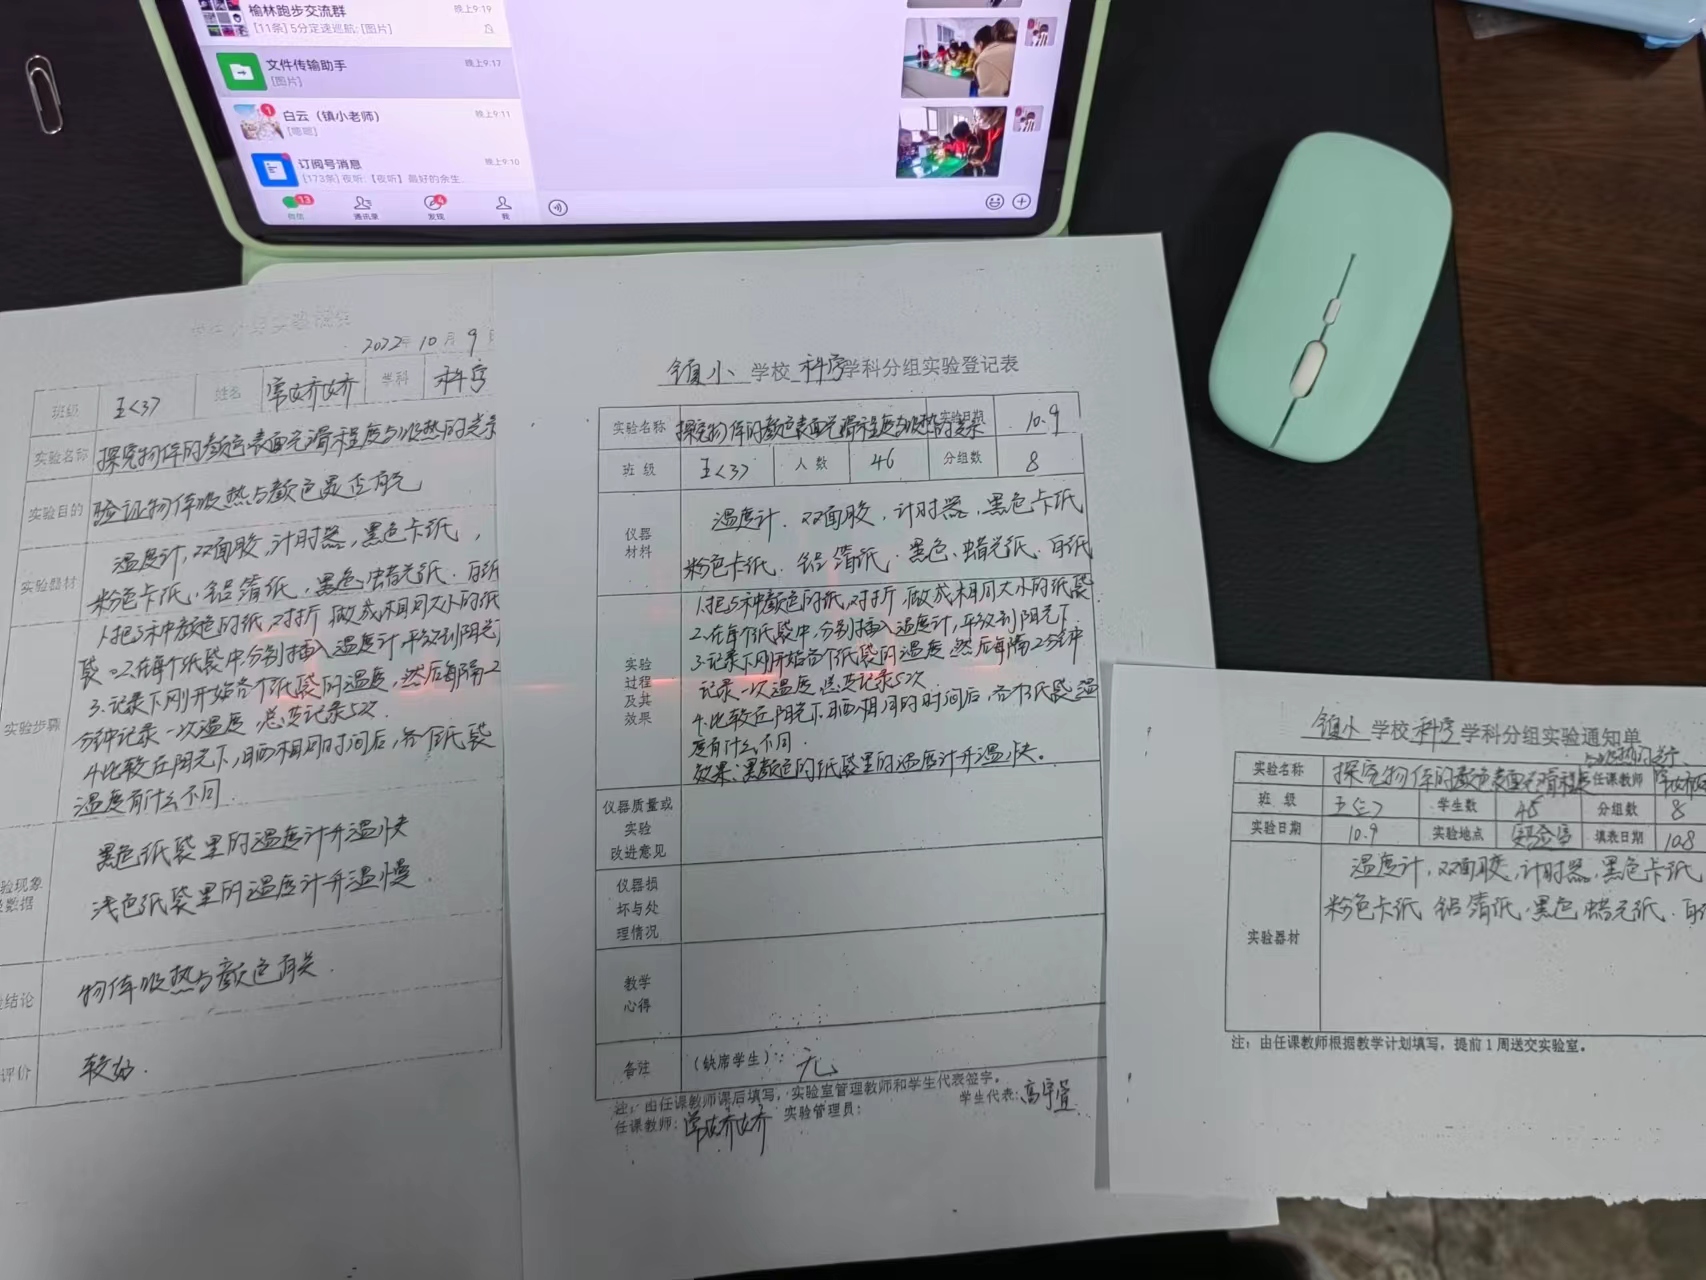 榆林跑步交流群
晚上9:19
[11条] 5分定速巡航: [图片]
文件传输助手
晚上9:17
[图片]
白云（镇小老师）
晚上9:11
[嗯嗯]
订阅号消息
晚上9:10
[173条] 夜听:【夜听】最好的余生...
13
4
微信
通讯录
发现
我
2022年 10月 9日
班级 五<3> 姓名 常娇娇 学科 科学
实验名称 探究物体的颜色表面光滑程度与吸热的关系
实验目的 验证物体吸热与颜色是否有关
实验器材 温度计,双面胶,计时器,黑色卡纸,
粉色卡纸,铝箔纸,黑色蜡光纸.白纸
实验步骤
1.把5种颜色的纸,对折 做成相同大小的纸
袋。2.在每个纸袋中,分别插入温度计,平放到阳光下
3.记录下刚开始各个纸袋的温度,然后每隔2
分钟记录一次温度 总共记录5次.
4.比较在阳光下,晒相同时间后,各个纸袋
温度有什么不同.
验现象
数据
黑色纸袋里的温度计升温快
浅色纸袋里的温度计升温慢.
结论 物体吸热与颜色有关.
评价 较好.
镇小 学校 科学 学科分组实验登记表
实验名称 探究物体的颜色表面光滑程度与吸热的关系 实验日期 10.9
班 级 五<3> 人 数 46 分组数 8
仪器
材料
温度计.双面胶,计时器,黑色卡纸
粉色卡纸.铝箔纸.黑色、蜡光纸.白纸
实验
过程
及其
效果
1.把5种颜色的纸,对折 做成相同大小的纸袋.
2.在每个纸袋中,分别插入温度计,平放到阳光下.
3.记录下刚开始各个纸袋的温度 然后每隔2分钟
记录一次温度,总共记录5次
4.比较在阳光下晒相同的时间后,各个纸袋温
度有什么不同.
效果:黑颜色的纸袋里的温度计升温快。
仪器质量或
实验
改进意见
仪器损
坏与处
理情况
教学
心得
备注 (缺席学生): 无
注: 由任课教师课后填写,实验室管理教师和学生代表签字。
任课教师: 常娇娇 实验管理员: 学生代表: 高宇萱
镇小 学校 科学 学科分组实验通知单
与吸热的关系
实验名称 探究物体的颜色表面光滑程度 任课教师 常娇娇
班 级 五<三> 学生数 46 分组数 8
实验日期 10.9 实验地点 实验室 填表日期 10.8
实验器材
温度计,双面胶,计时器,黑色卡纸
粉色卡纸 铝箔纸,黑色 蜡光纸.白纸
注: 由任课教师根据教学计划填写, 提前1周送交实验室。